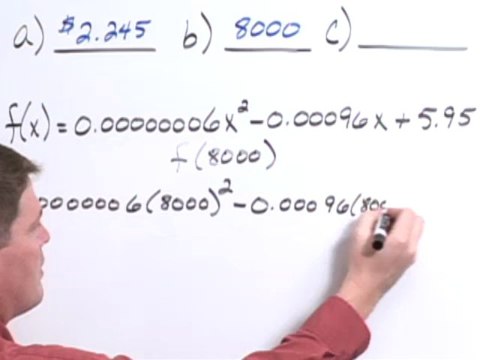 a) $2.245 b) 8000 c)
f(x) = 0.00000006x² - 0.00096x + 5.95
f(8000)
000006(8000)² - 0.00096(800